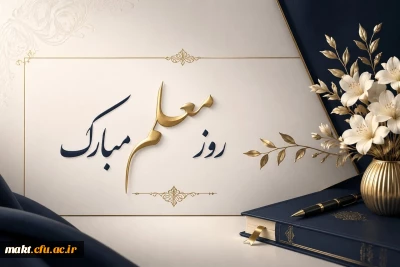 روز معلم مبارک
makt.cfu.ac.ir